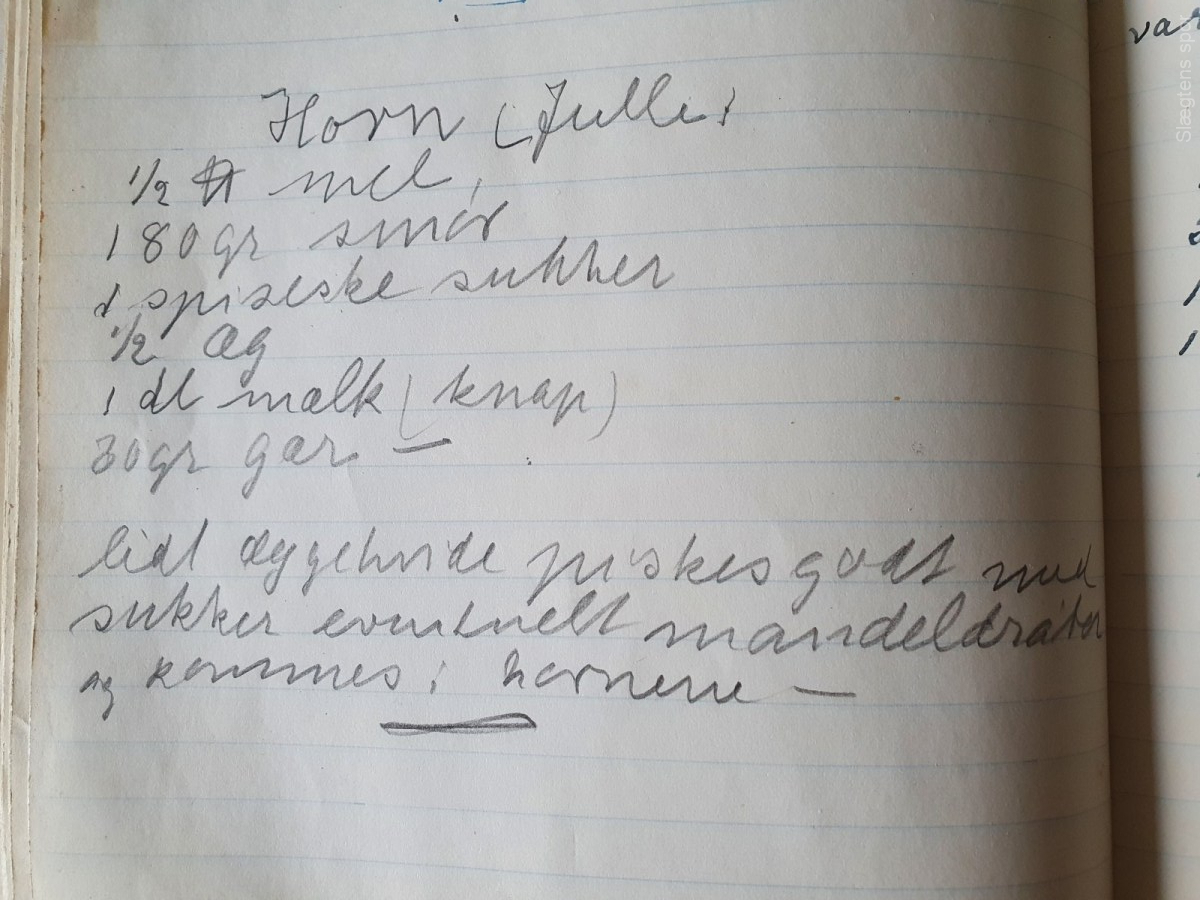 Horn (Julle)
1/2 ℔ mel,
180gr smør
1 spiseske sukker
1/2 Æg
1 dl mælk (knap)
30gr gær —
lidt æggehvide piskes godt med
sukker eventuelt mandeldråber
og kommes i hornene —
var
Slægtens sp